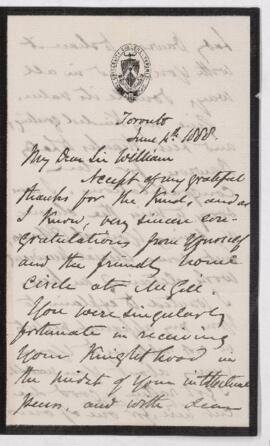 UNIVERSITY COLLEGE TORONTO
Toronto
June 4th 1888
My Dear Sir William
Accept of my grateful
thanks for the kind, and as
I know, very sincere con-
gratulations from yourself
and the friendly home
circle at McGill.
You were singularly
fortunate in receiving
your Knighthood in
the midst of your intellectual
peers, and with dear